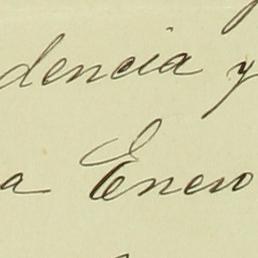 dencia y
a Enero